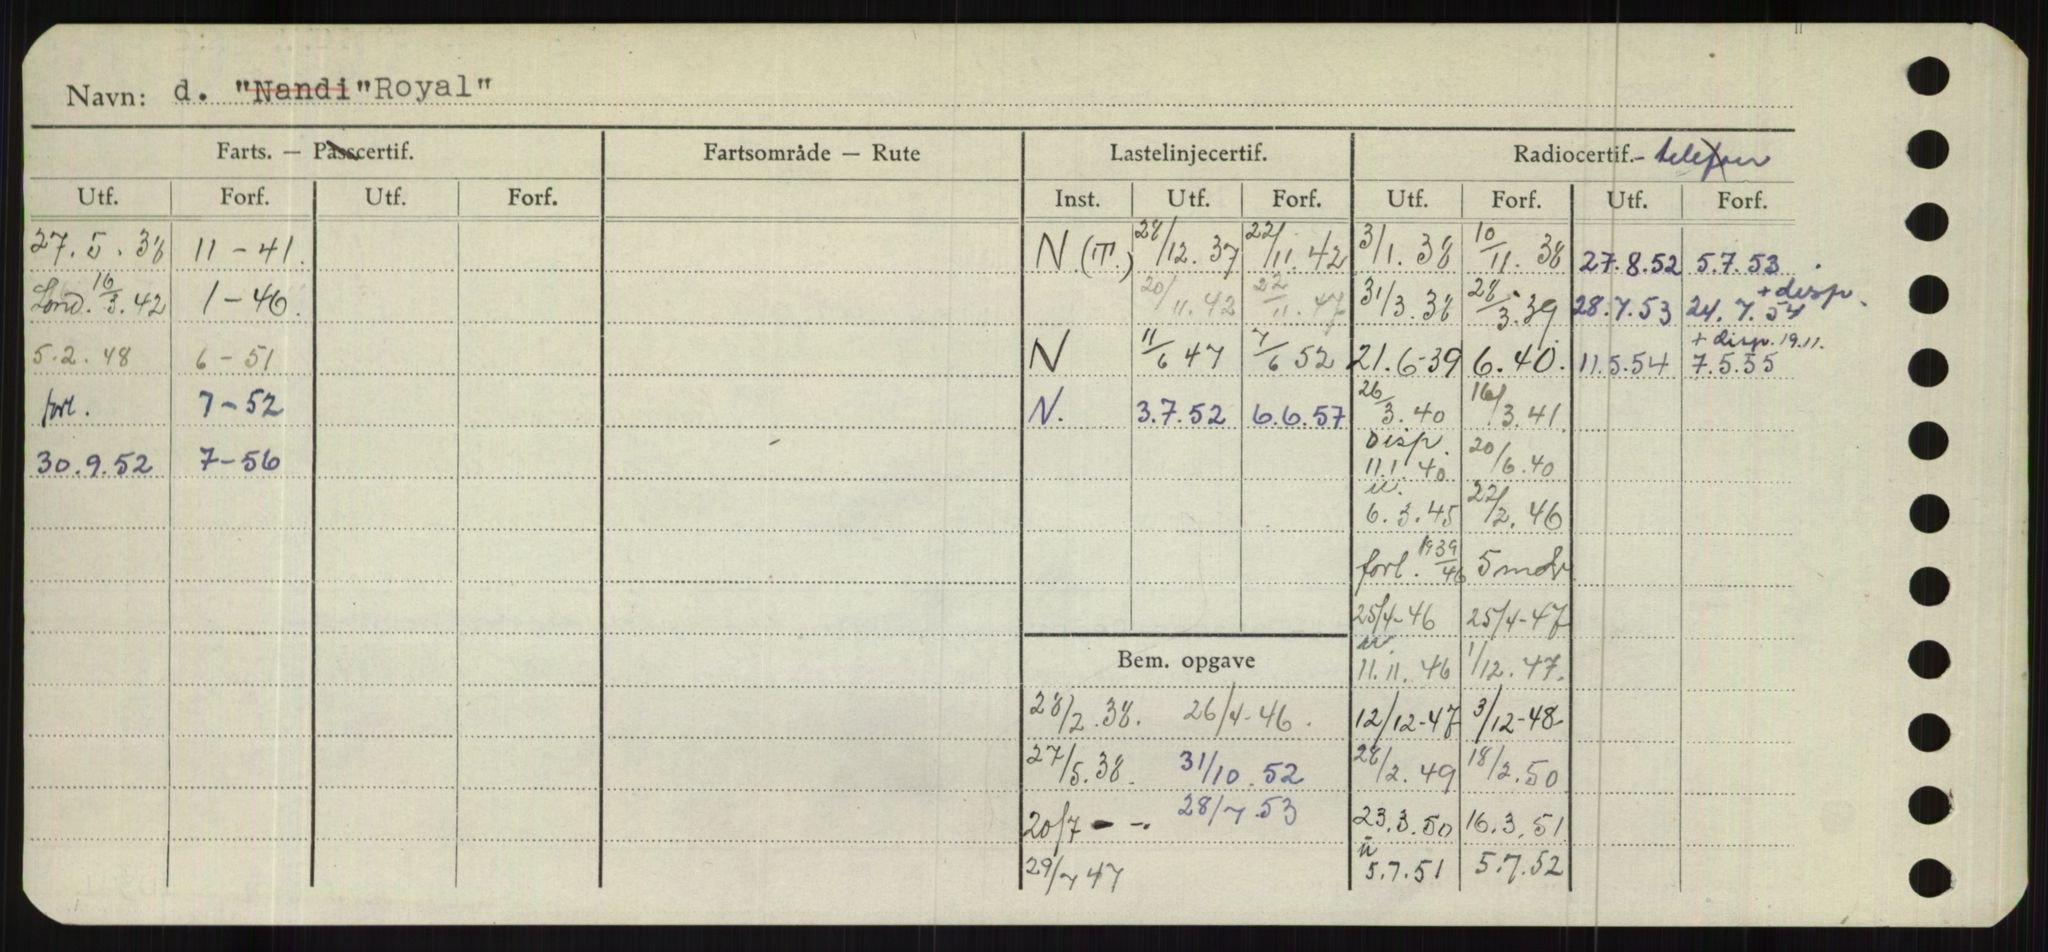 Navn: d. "Nandi" Royal"
Farts. — Passcertif. Fartsområde — Rute Lastelinjecertif. Radiocertif. - telefon
Utf. Forf. Utf. Forf. Inst. Utf. Forf. Utf. Forf. Utf. Forf.
27.5.38 11-41. N.(T.) 28/12.37 22/11.42 3/1.38 10/11.38 27.8.52 5.7.53
Lond. 16/3.42 1-46. 20/11.42 22/11.47 31/3.38 28/3.39 28.7.53 24.7.54 + disp.
5.2.48 6-51 N 11/6 47 7/6 52 21.6-39 6.40. 11.5.54 7.5.55 + disp. 19.11.
forl. 7-52 N. 3.7.52 6.6.57 26/3.40 16/3.41
30.9.52 7-56 Disp. 11.1.40 20/6.40
u. 6.3.45 22/2.46
forl. 1939/46 5 mdr
25/4-46 25/4-47
Bem. opgave u. 11.11.46 1/12.47.
28/2.38. 26/4-46. 12/12-47 3/12-48
27/5.38. 31/10.52 28/2.49 18/2.50
20/7 - -. 28/7.53 23.3.50 16.3.51
29/7 47 u 5.7.51 5.7.52